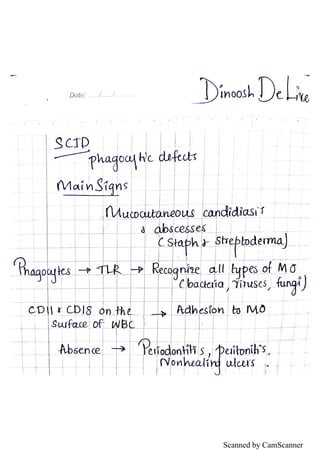 Date: ___/___/___
Dinoosh De Livre
SCID
phagocytic defects
Main Signs
Mucocutaneous candidiasis
& abscesses
(Staph & Streptoderma)
Phagocytes → TLR → Recognize all types of MO
(bacteria, Viruses, fungi)
CD11 & CD18 on the → Adhesion to MO
Surface of WBC
Absence → Periodontitis, peritonitis,
Nonhealing ulcers.
Scanned by CamScanner